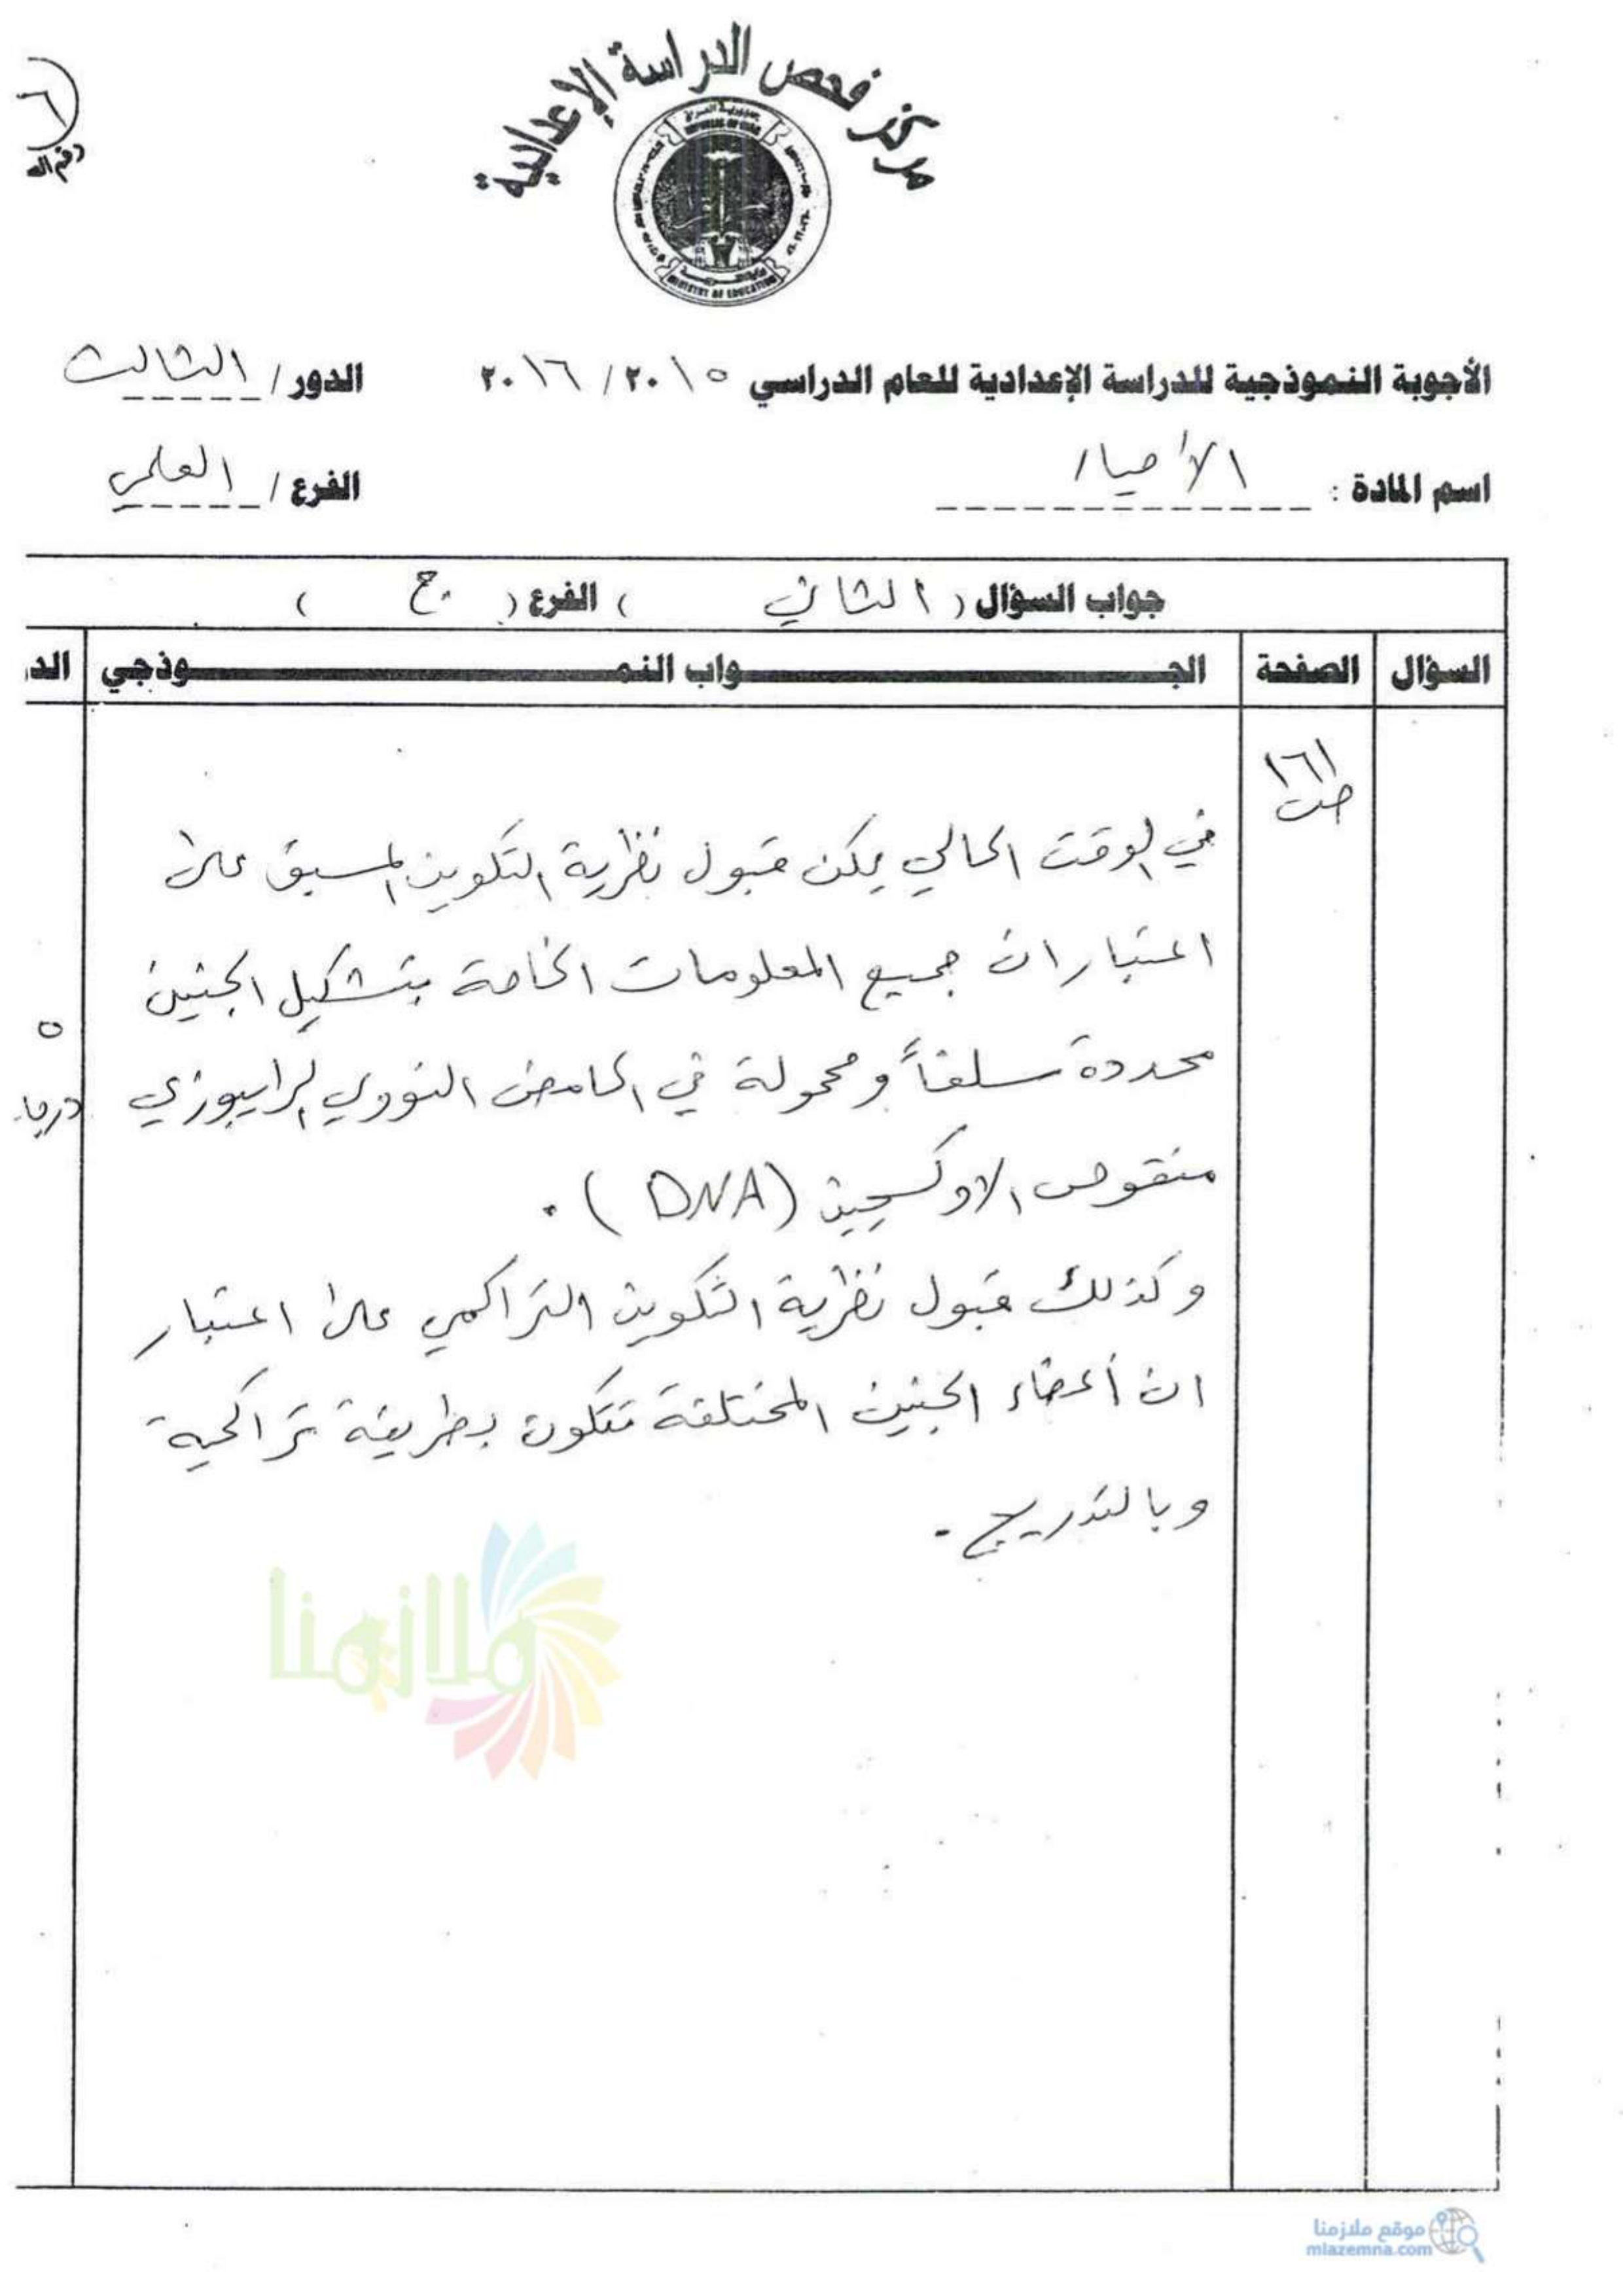 مركز فحص الدراسة الإعدادية
٦
جمهورية العراق
REPUBLIC OF IRAQ
MINISTRY OF EDUCATION
الأجوبة النموذجية للدراسة الإعدادية للعام الدراسي ٢٠١٥ / ٢٠١٦ الدور / الثالث
اسم المادة : الأحياء الفرع / العلمي
جواب السؤال ( الثاني ) الفرع ( ج )
السؤال الصفحة الجـــواب النمـــوذجي الدر
ص ١٦١
في الوقت الحالي يمكن قبول نظرية التكوين المسبق على
اعتبار ان جميع المعلومات الخاصة بتشكيل الجنين
محددة سلفاً ومحمولة في الحامض النووي الرايبوزي
منقوص الاوكسجين (DNA) .
٥
درجا
وكذلك قبول نظرية التكوين التراكمي على اعتبار
ان أعضاء الجنين المختلفة تتكون بطريقة تراكمية
وبالتدريج .
ملازمنا
موقع ملازمنا
mlazemna.com